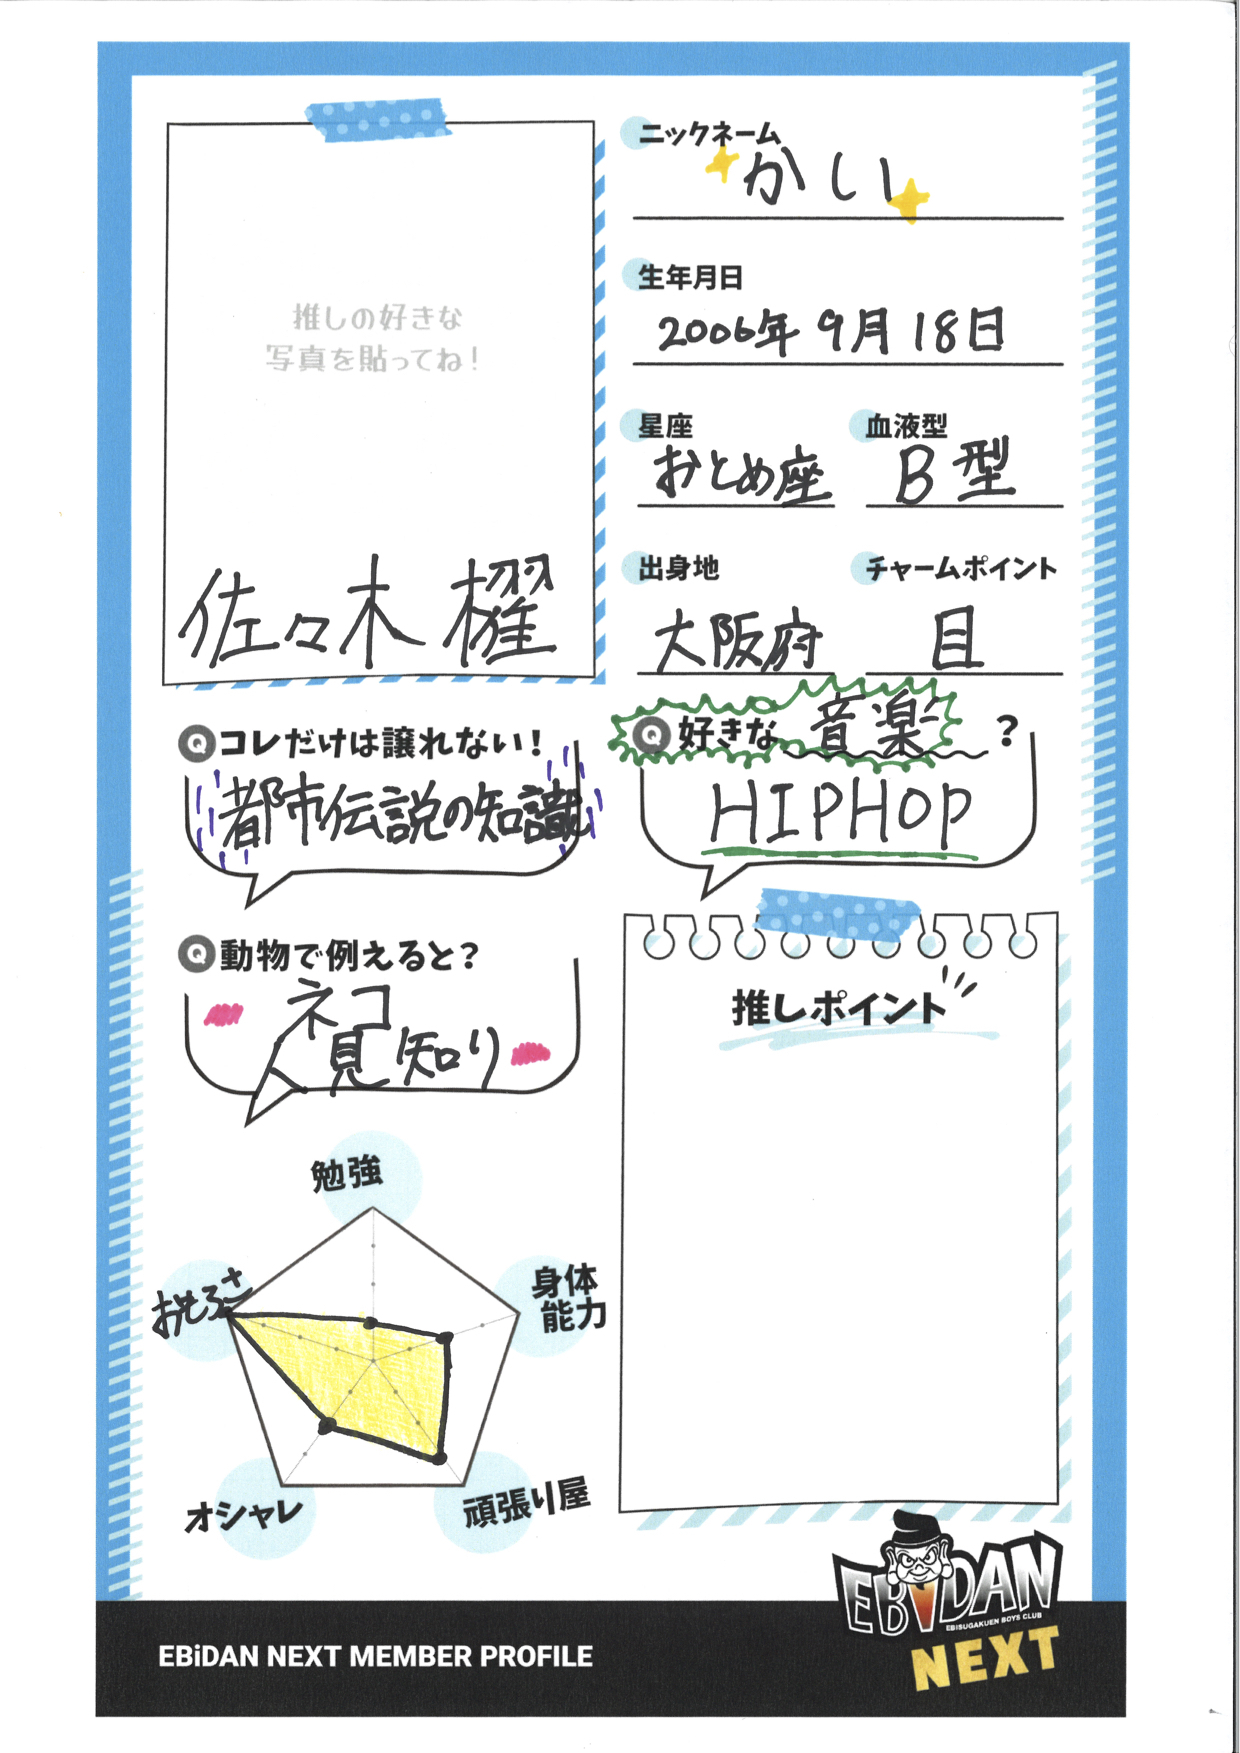 ニックネーム
かい
生年月日
2006年 9月 18日
星座
おとめ座
血液型
B型
出身地
大阪府
チャームポイント
目
推しの好きな
写真を貼ってね！
佐々木 櫂
Q コレだけは譲れない！
都市伝説の知識
Q 好きな 音楽 ？
HIPHOP
Q 動物で例えると？
ネコ
人見知り
推しポイント
勉強
身体
能力
頑張り屋
オシャレ
おもろさ
EBiDAN
EBISUGAKUEN BOYS CLUB
NEXT
EBiDAN NEXT MEMBER PROFILE